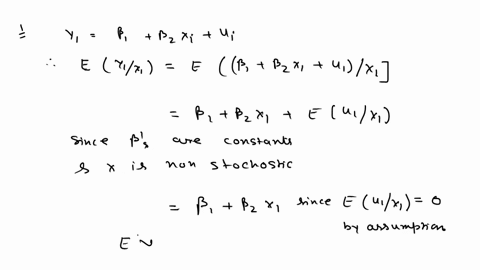 1
Y₁ = β₁ + β₂ xᵢ + uᵢ
∴ E (Y₁/x₁) = E ((β₁ + β₂ x₁ + u₁)/x₁]
= β₁ + β₂ x₁ + E (u₁/x₁)
since β's are constants
& x is non stochostic
= β₁ + β₂ x₁ since E (u₁/x₁) = 0
by assumption
E